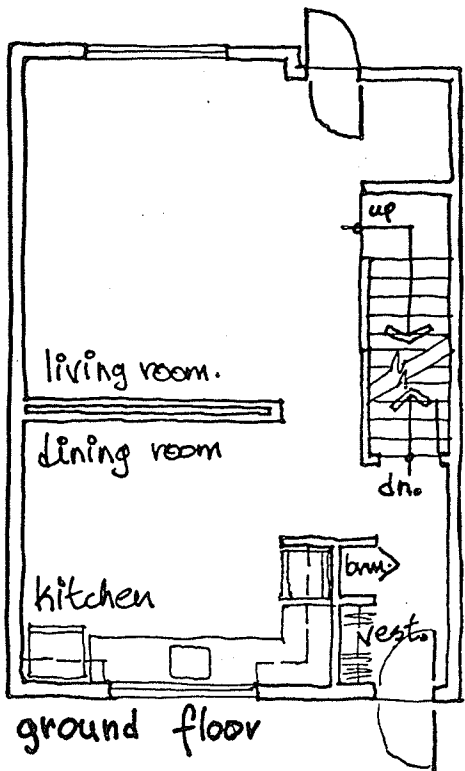 up
living room.
dining room
dn.
kitchen
vest.
ground floor